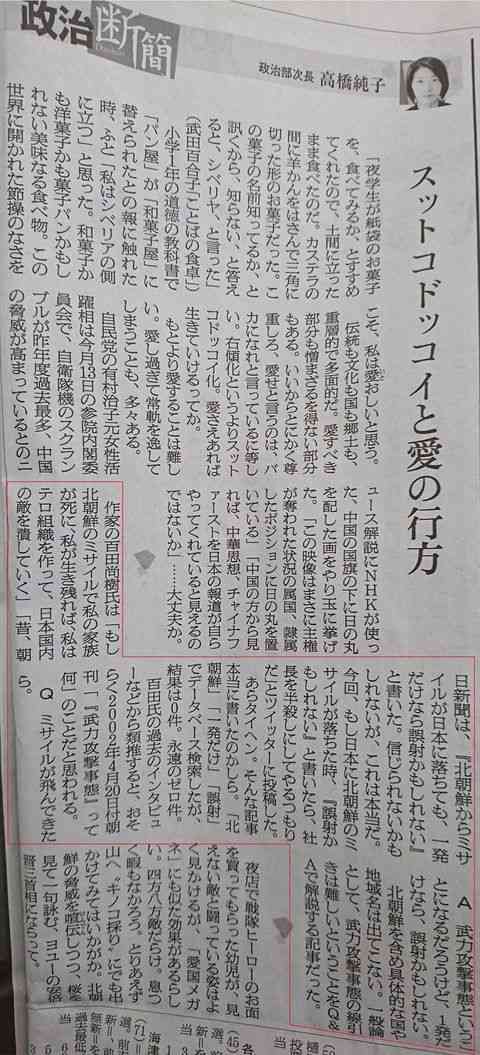 政治断簡
政治部次長 高橋純子
スットコドッコイと愛の行方
「夜学生が紙袋のお菓子
を、食べてみるか、とすすめ
てくれたので、土間に立った
まま食べたのだ。カステラの
間に羊かんをはさんで三角に
切った形のお菓子だった。こ
の菓子の名前知ってるか、と
訊くから、知らない、と答え
ると、シベリヤ、と言った」
(武田百合子「ことばの食卓」)
小学1年の道徳の教科書で
「パン屋」が「和菓子屋」に
替えられたとの報に触れた
時、ふと「私はシベリアの側
に立つ」と思った。和菓子か
も洋菓子かも菓子パンかもし
れない美味なる食べ物。この
世界に開かれた節操のなさを
こそ、私は愛おしいと思う。
伝統も文化も国も郷土も、
重層的で多面的だ。愛すべき
部分も憎まざるを得ない部分
もある。いいからとにかく尊
重しろ、愛せと言うのは、バ
カになれと言っているに等し
い。右傾化というよりスット
コドッコイ化。愛さえあれば
生きていけるってか。
もとより愛することは難し
い。愛し過ぎて常軌を逸して
しまうことも、多々ある。
自民党の有村治子元女性活
躍相は今月13日の参院内閣委
員会で、自衛隊機のスクラン
ブルが昨年度過去最多、中国
の脅威が高まっているとのニ
ュース解説にNHKが使っ
た、中国の国旗の下に日の丸
を配した画をやり玉に挙げ
た。「この映像はまさに主権
が奪われた状況の属国、隷属
したポジションに日の丸を置
いている」「中国の方から見
れば、中華思想、チャイナフ
ァーストを日本の報道が自ら
やってくれていると見えるの
ではないか」……大丈夫か。
作家の百田尚樹氏は「もし
北朝鮮のミサイルで私の家族
が死に、私が生き残れば、私は
テロ組織を作って、日本国内
の敵を潰していく」「昔、朝
日新聞は、『北朝鮮からミサ
イルが日本に落ちても、一発
だけなら誤射かもしれない』
と書いた。信じられないかも
しれないが、これは本当だ。
今回、もし日本に北朝鮮のミ
サイルが落ちた時、『誤射か
もしれない』と書いたら、社
長を半殺しにしてやるつもり
だ」とツイッターに投稿した。
あらタイヘン。そんな記事
本当に書いたのかしら。「北
朝鮮」「一発だけ」「誤射」
でデータベース検索したが、
結果は0件。永遠のゼロ件。
百田氏の過去のインタビュ
ーなどから類推すると、おそ
らく2002年4月20日付朝
刊「『武力攻撃事態』って
何」のことだと思われる。
Q ミサイルが飛んできた
ら。
A 武力攻撃事態というこ
とになるだろうけど、1発だ
けなら、誤射かもしれない。
北朝鮮を含め具体的な国や
地域名は出てこない。一般論
として、武力攻撃事態の線引
きは難しいということをQ&
Aで解説する記事だった。
夜店で戦隊ヒーローのお面
を買ってもらった幼児が、見
えない敵と闘っている姿はよ
く見かけるが、「愛国メガ
ネ」にも似た効果があるらし
い。四方八方敵だらけ。息つ
く暇もなかろう。とりあえず
山へ〝キノコ採り〟にでも出
かけてみてはいかがか。北朝
鮮の脅威を喧伝しつつ、桜を
見て一句詠む、ヨユーの安倍
晋三首相にならって。